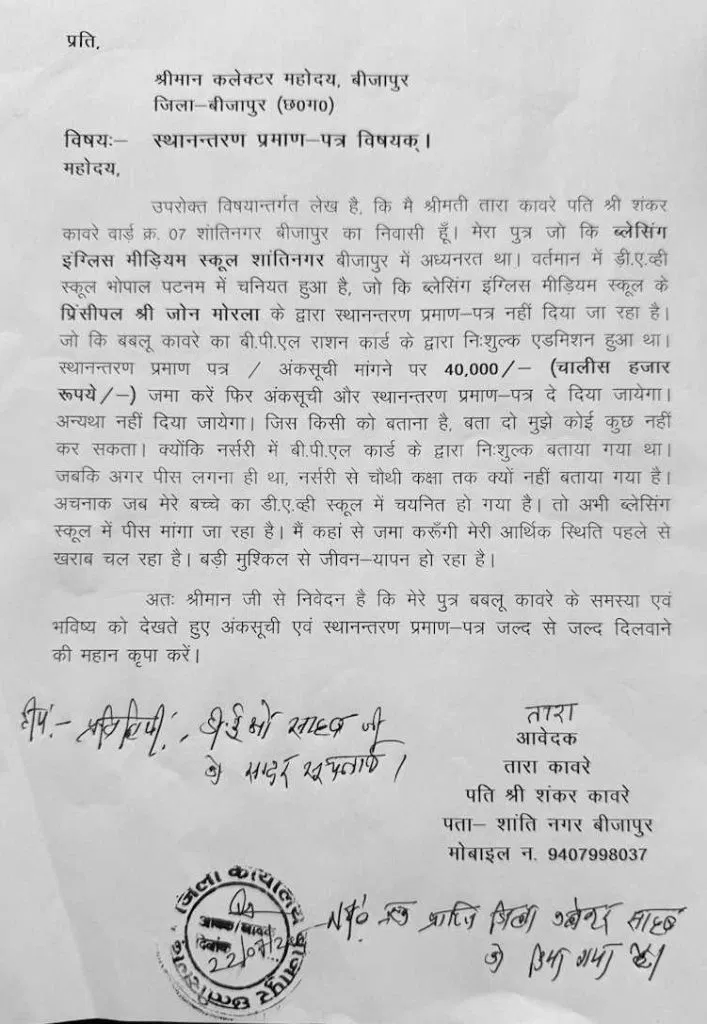 प्रति,
श्रीमान कलेक्टर महोदय, बीजापुर
जिला–बीजापुर (छ0ग0)
विषयः– स्थानन्तरण प्रमाण–पत्र विषयक्।
महोदय,
उपरोक्त विषयान्तर्गत लेख है, कि मै श्रीमती तारा कावरे पति श्री शंकर
कावरे वार्ड क्र. 07 शांतिनगर बीजापुर का निवासी हूँ। मेरा पुत्र जो कि ब्लेसिंग
इंग्लिस मीड़ियम स्कूल शांतिनगर बीजापुर में अध्यनरत था। वर्तमान में डी.ए.व्ही
स्कूल भोपाल पटनम में चनियत हुआ है, जो कि ब्लेसिंग इंग्लिस मीड़ियम स्कूल के
प्रिंसीपल श्री जोन मोरला के द्वारा स्थानन्तरण प्रमाण–पत्र नहीं दिया जा रहा है।
जो कि बबलू कावरे का बी.पी.एल राशन कार्ड के द्वारा निःशुल्क एडमिशन हुआ था।
स्थानन्तरण प्रमाण पत्र / अंकसूची मांगने पर 40,000/– (चालीस हजार
रूपये/–) जमा करें फिर अंकसूची और स्थानन्तरण प्रमाण–पत्र दे दिया जायेगा।
अन्यथा नहीं दिया जायेगा। जिस किसी को बताना है, बता दो मुझे कोई कुछ नहीं
कर सकता। क्योंकि नर्सरी में बी.पी.एल कार्ड के द्वारा निःशुल्क बताया गया था।
जबकि अगर पीस लगना ही था, नर्सरी से चौथी कक्षा तक क्यों नहीं बताया गया है।
अचानक जब मेरे बच्चे का डी.ए.व्ही स्कूल में चयनित हो गया है। तो अभी ब्लेसिंग
स्कूल में पीस मांगा जा रहा है। मैं कहां से जमा करूँगी मेरी आर्थिक स्थिति पहले से
खराब चल रहा है। बड़ी मुश्किल से जीवन–यापन हो रहा है।
अतः श्रीमान जी से निवेदन है कि मेरे पुत्र बबलू कावरे के समस्या एवं
भविष्य को देखते हुए अंकसूची एवं स्थानन्तरण प्रमाण–पत्र जल्द से जल्द दिलवाने
की महान कृपा करें।
टीपं:- प्रतिलिपी:- डी.ई.ओ साहब जी
को सादर सूचनार्थ।
तारा
आवेदक
तारा कावरे
पति श्री शंकर कावरे
पता– शांति नगर बीजापुर
मोबाइल न. 9407998037
जिला कार्यालय बीजापुर छत्तीसगढ़
आवक/जावक
दिनांक 22/07/2
जिला कलेक्टर साहब
को दिया गया है।